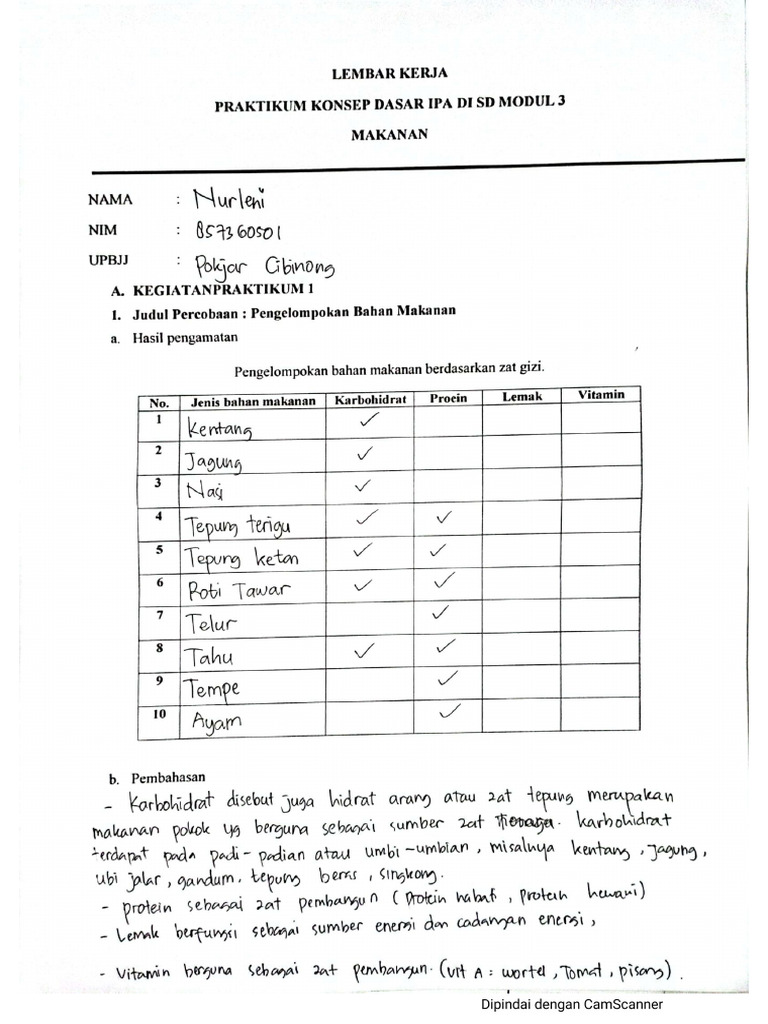 LEMBAR KERJA
PRAKTIKUM KONSEP DASAR IPA DI SD MODUL 3
MAKANAN
NAMA : Nurleni
NIM : 857360501
UPBJJ : Pokjar Cibinong
A. KEGIATANPRAKTIKUM 1
1. Judul Percobaan : Pengelompokan Bahan Makanan
a. Hasil pengamatan
Pengelompokan bahan makanan berdasarkan zat gizi.
No. Jenis bahan makanan Karbohidrat Procin Lemak Vitamin
1 Kentang ✓
2 Jagung ✓
3 Nasi ✓
4 Tepung terigu ✓ ✓
5 Tepung ketan ✓ ✓
6 Roti Tawar ✓ ✓
7 Telur ✓
8 Tahu ✓ ✓
9 Tempe ✓
10 Ayam ✓
b. Pembahasan
- Karbohidrat disebut juga hidrat arang atau zat tepung merupakan
makanan pokok yg berguna sebagai sumber zat karbohidrat
terdapat pada padi-padian atau umbi-umbian, misalnya kentang, jagung,
ubi jalar, gandum, tepung beras, singkong.
- protein sebagai zat pembangun (protein nabati, protein hewani)
- Lemak berfungsi sebagai sumber energi dan cadangan energi,
- Vitamin berguna sebagai zat pembangun. (vit A : wortel, Tomat, pisang).
Dipindai dengan CamScanner